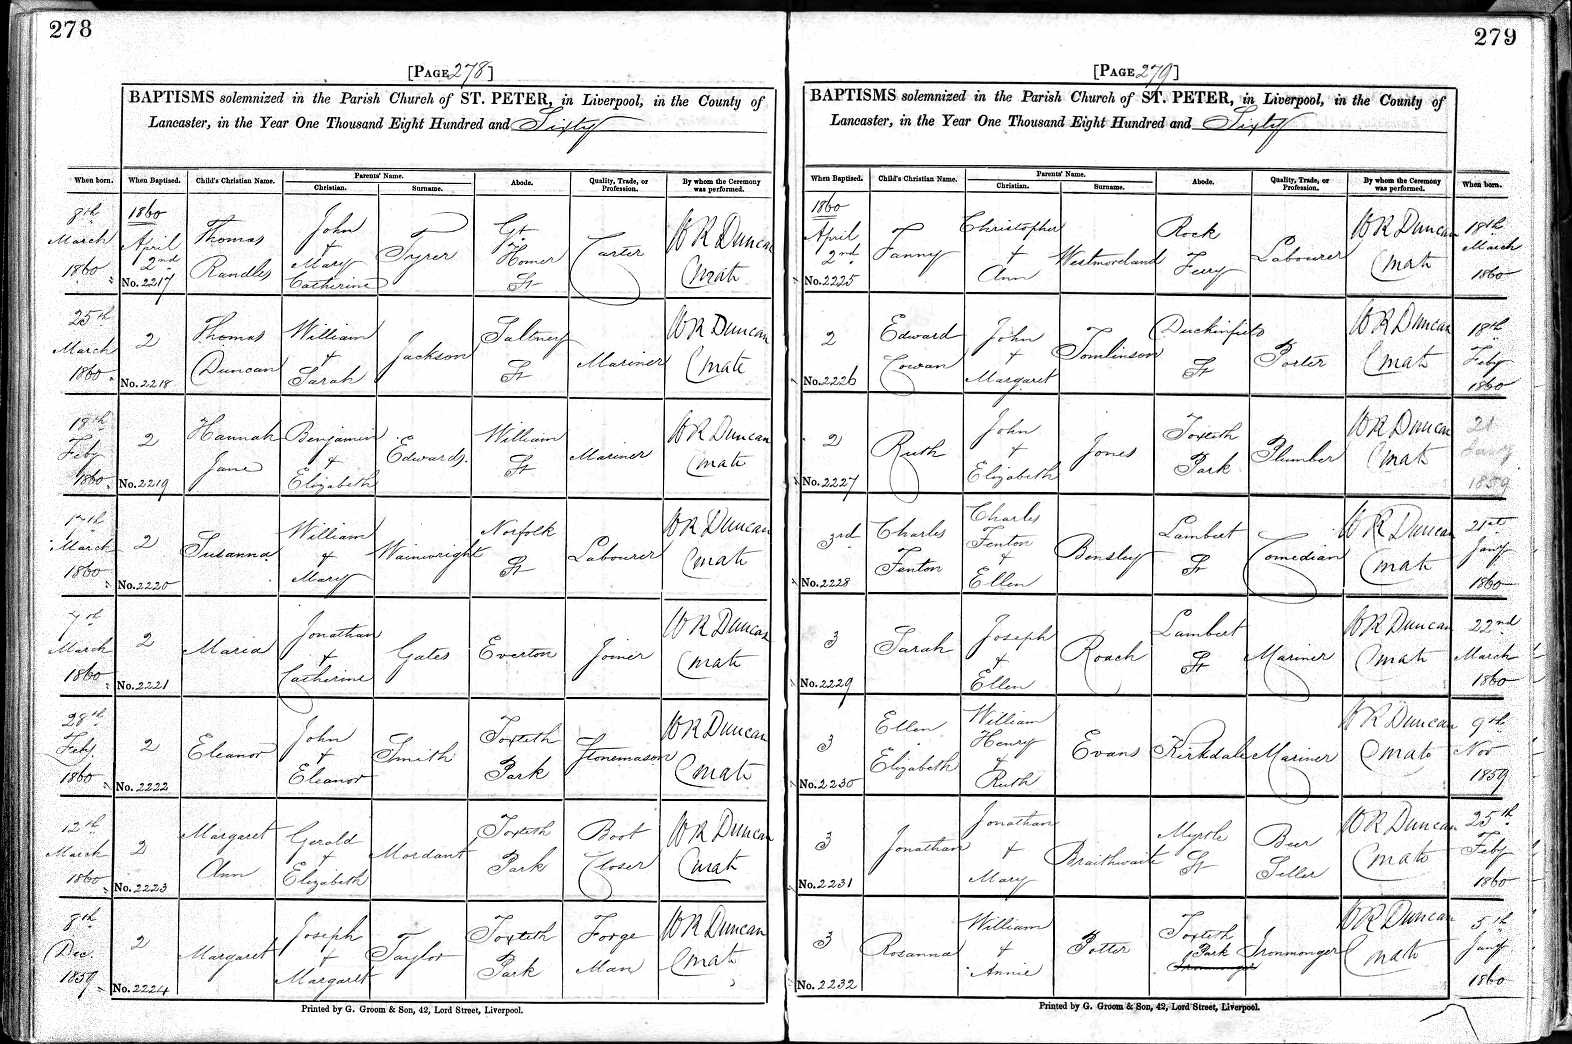 278
[PAGE 278]
BAPTISMS solemnized in the Parish Church of ST. PETER, in Liverpool, in the County of
Lancaster, in the Year One Thousand Eight Hundred and Sixty
When born. When Baptised. Child's Christian Name. Parents' Name. Christian. Surname. Abode. Quality, Trade, or Profession. By whom the Ceremony was performed.
8th March 1860 1860 April 2nd No. 2217 Thomas Randles John + Mary Catherine Tyrer Gt. Homer St Carter W R Duncan Curate
25th March 1860 2 No. 2218 Thomas Duncan William + Sarah Jackson Saltney St Mariner W R Duncan Curate
18th Feby 1860 2 No. 2219 Hannah Jane Benjamin + Elizabeth Edwards William St Mariner W R Duncan Curate
17th March 1860 2 No. 2220 Susanna William + Mary Wainwright Norfolk St Labourer W R Duncan Curate
7th March 1860 2 No. 2221 Maria Jonathan + Catherine Gates Everton Joiner W R Duncan Curate
28th Feby 1860 2 No. 2222 Eleanor John + Eleanor Smith Toxteth Park Stonemason W R Duncan Curate
12th March 1860 2 No. 2223 Margaret Ann Gerald + Elizabeth Mordant Toxteth Park Boot Closer W R Duncan Curate
8th Dec. 1859 2 No. 2224 Margaret Joseph + Margaret Taylor Toxteth Park Forge Man W R Duncan Curate
Printed by G. Groom & Son, 42, Lord Street, Liverpool.
279
[PAGE 279]
BAPTISMS solemnized in the Parish Church of ST. PETER, in Liverpool, in the County of
Lancaster, in the Year One Thousand Eight Hundred and Sixty
When Baptised. Child's Christian Name. Parents' Name. Christian. Surname. Abode. Quality, Trade, or Profession. By whom the Ceremony was performed. When born.
1860 April 2nd No. 2225 Fanny Christopher + Ann Westmoreland Rock Ferry Labourer W R Duncan Curate 18th March 1860
2 No. 2226 Edward Cowan John + Margaret Tomlinson Duckinfield St Porter W R Duncan Curate 18th Feby 1860
2 No. 2227 Ruth John + Elizabeth Jones Toxteth Park Plumber W R Duncan Curate 21 1859
3rd No. 2228 Charles Fenton Charles Fenton + Ellen Bensley Lambert St Comedian W R Duncan Curate 21st Jany 1860
3 No. 2229 Sarah Joseph + Ellen Roach Lambert St Mariner W R Duncan Curate 22nd March 1860
3 No. 2230 Ellen Elizabeth William Henry + Ruth Evans Kirkdale Mariner W R Duncan Curate 9th Nov 1859
3 No. 2231 Jonathan Jonathan + Mary Braithwaite Myrtle St Beer Seller W R Duncan Curate 25th Feby 1860
3 No. 2232 Rosanna William + Annie Potter Toxteth Park Ironmonger Ironmonger W R Duncan Curate 5th Jany 1860
Printed by G. Groom & Son, 42, Lord Street, Liverpool.